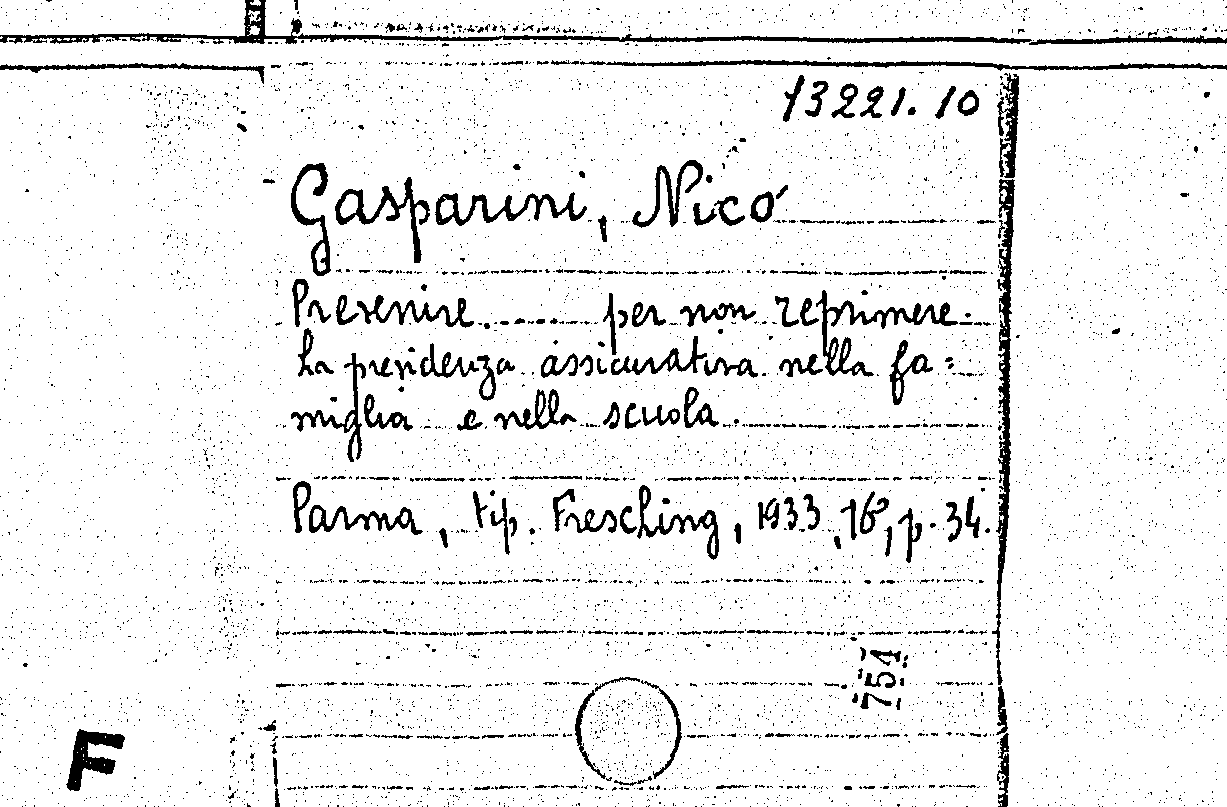 13221.10
Gasparini, Nico
Prevenire..... per non reprimere.
La previdenza assicurativa nella fa=
miglia e nella scuola.
Parma, tip. Fresching, 1933, 16°, p. 34.
754
F